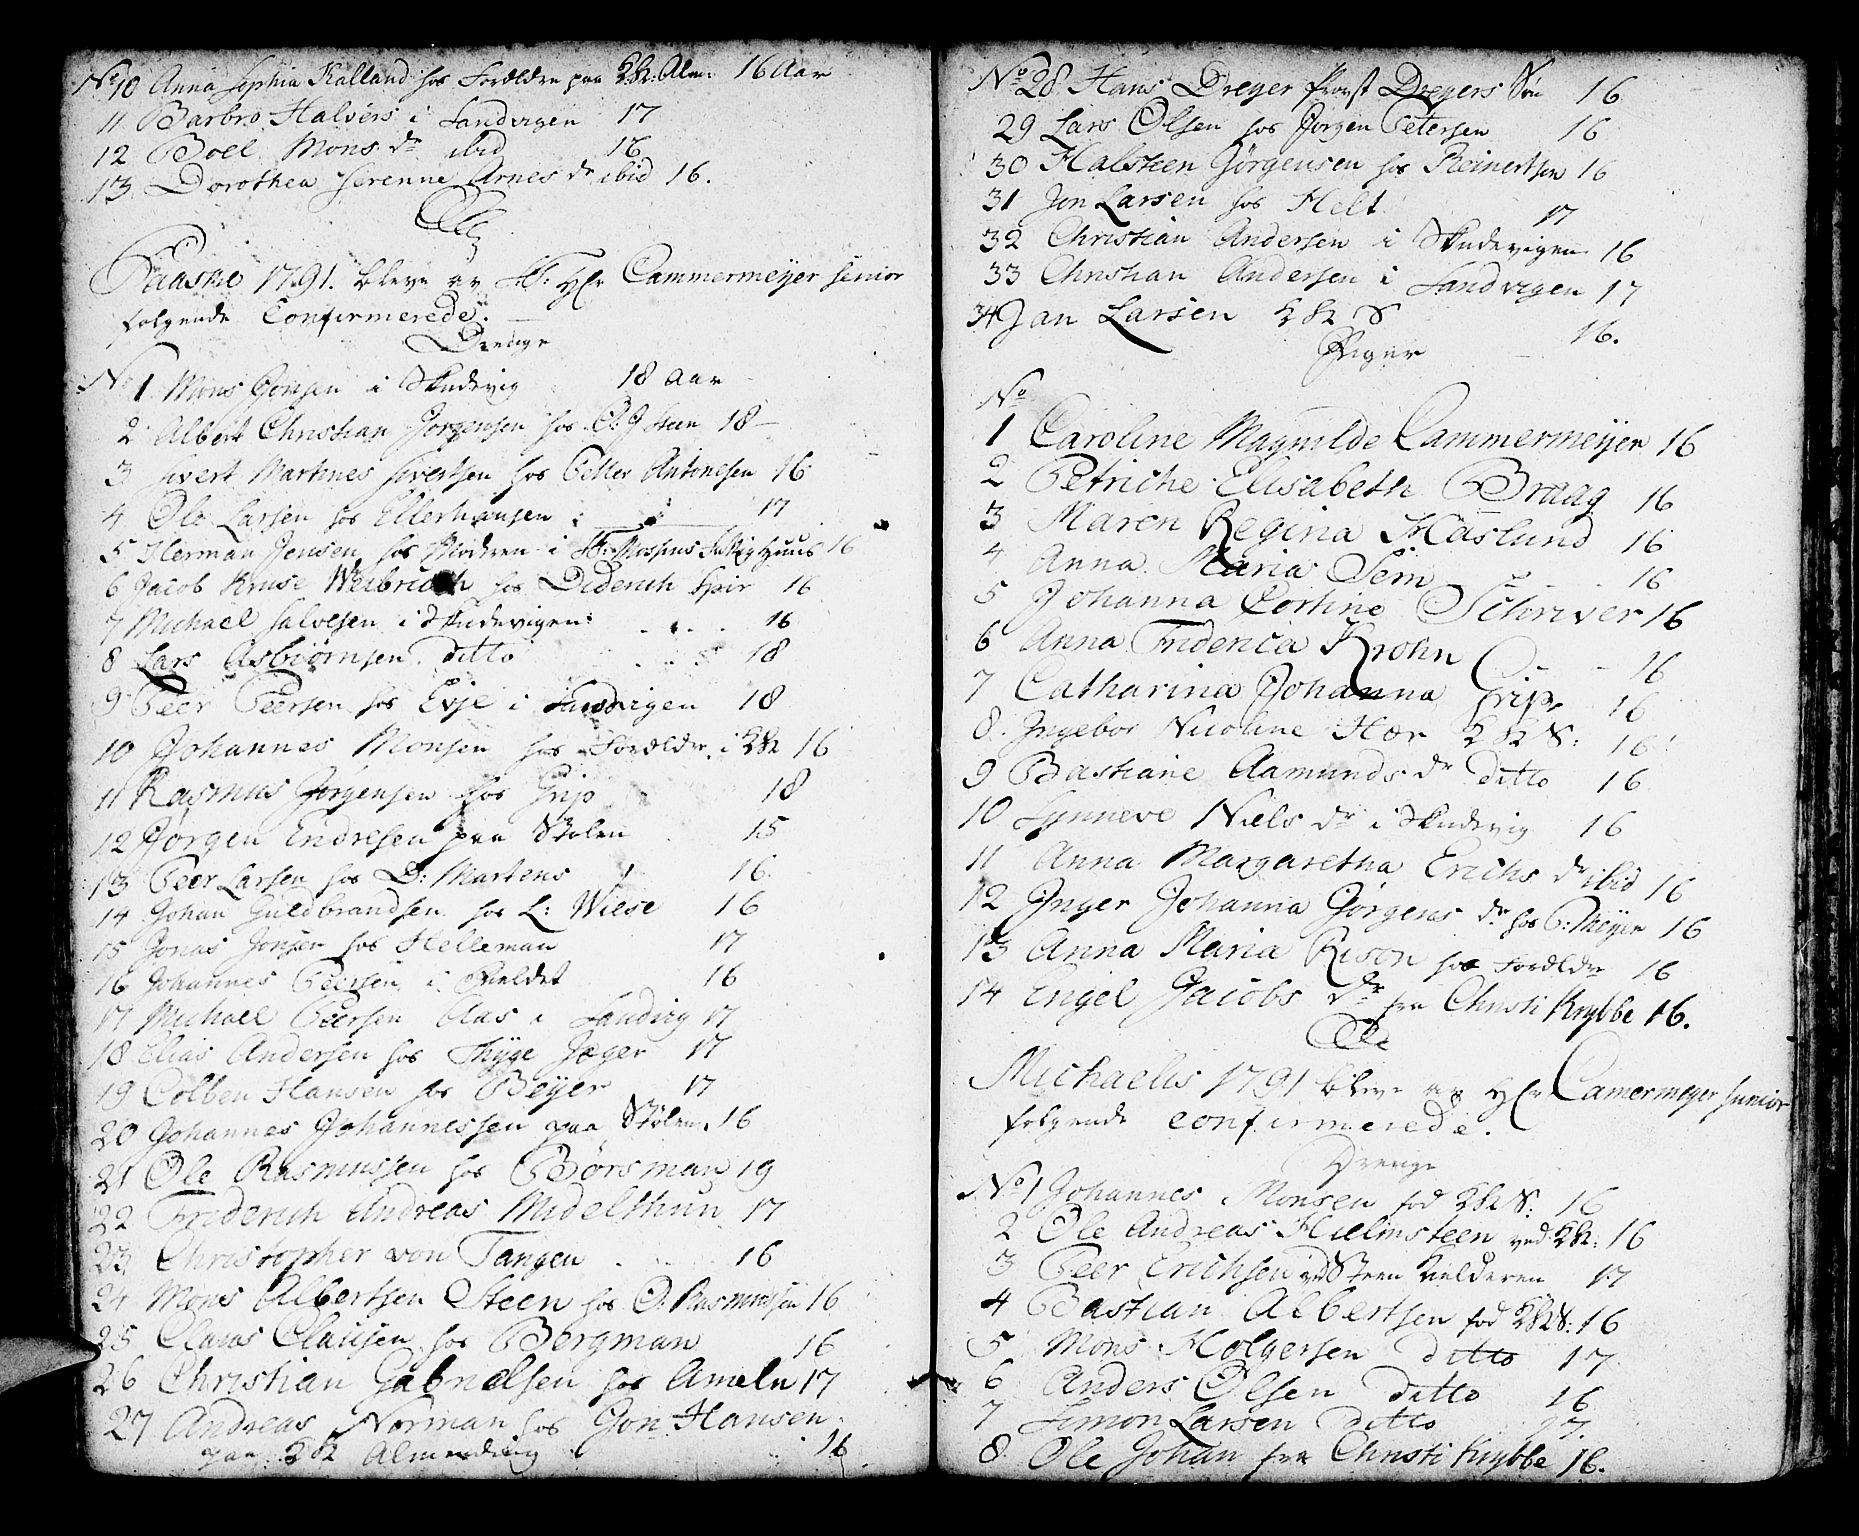 No 10 Anna Sophia Kalland hos Forældre paa Alm: 16 Aar
11 Barbro Halvors i Sandvigen 17
12 Boel Mons dr ibid 16
13 Dorothea Serenne Arnes dr ibid 16.
Paaske 1791. bleve av Hr Cammermeyer senior
følgende Confirmerede.
Drenge
No 1 Mons Jonsen i Skudevig 18 Aar
2 Albert Christian Jørgensen hos O: J Steen 18 –
3 Sivert Martines Sivertsen hos Petter Antonesen 16
4 Ole Larsen hos Ellerhausen 17
5 Herman Jensen hos Modren i Huus 16
6 Jacob Kruse Weibrich hos Diderich Spir 16
7 Michael Salvesen i Skudevigen 16
8 Lars Asbiørnsen ditto 18
9 Peer Peersen hos Evje i Sandvigen 18
10 Johannes Monsen hos Forældr. i 16
11 Rasmus Jørgensen hos Grip 18
12 Jørgen Endresen paa Stølen 15
13 Peer Larsen hos D: Martens 16.
14 Johan Guldbrandsen hos L: Wiese 16
15 Jonas Jonsen hos Helleman 17
16 Johannes Peersen i Fieldet 16
17 Michael Peersen Aas i Sandvig 17
18 Elias Andersen hos Thyge Jæger 17
19 Colben Hansen hos Beyer 17
20 Johannes Johannessen paa Stølen 16
21 Ole Rasmussen hos Børsman 19
22 Friderich Andreas Midelthun 17
23 Christopher von Tangen 16
24 Mons Albertsen Steen hos O. Rasmussen 16
25 Claus Clausen hos Bergman 16
26 Christian Gabrielsen hos Ameln 17
27 Andreas Norman hos Jon Hansen
paa Almending 16
No 28 Hans Dreyer Provst Dreyers Søn 16
29 Lars Olsen hos Jørgen Petersen 16
30 Halsteen Jørgensen hos Reinertsen 16
31 Jon Larsen hos Helt 17
32 Christian Andersen i Skudevigen 16
33 Christian Andersen i Sandvigen 17
34 Jan Larsen 16.
Piger
No
1 Caroline Magnilde Cammermeyer 16
2 Petriche Elisabeth Braag 16
3 Maren Regina Haslund 16
4 Anna Maria Sem 16
5 Johanna Cortine Schriver 16
6 Anna Friderica Krohn 16
7 Catharina Johanna Frip 16
8. Ingebor Nicoline Hær 16
9 Bastiane Aamunds dr ditto 16
10 Synneve Niels dr i Skudevig 16
11 Anna Margaretha Erichs dr ibid 16
12 Inger Johanna Jørgens dr hos P: Meyer 16
13 Anna Maria Rison hos Forældr 16
14 Engel Jacobs dr fra Christi Krybbe 16.
Michaelis 1791 bleve av Hr Camermeyer junior
følgende confirmerede.
Drenge
No 1 Johannes Monsen fød 16
2 Ole Andreas Hielmsteen ved 16
3 Peer Erichsen ved Steen Kielderen 17
4 Bastian Albertsen fød 16
5 Mons Holgersen ditto 17
6 Anders Olsen ditto 16
7 Simon Larsen ditto 17.
8 Ole Johan fra Christi Krybbe 16.